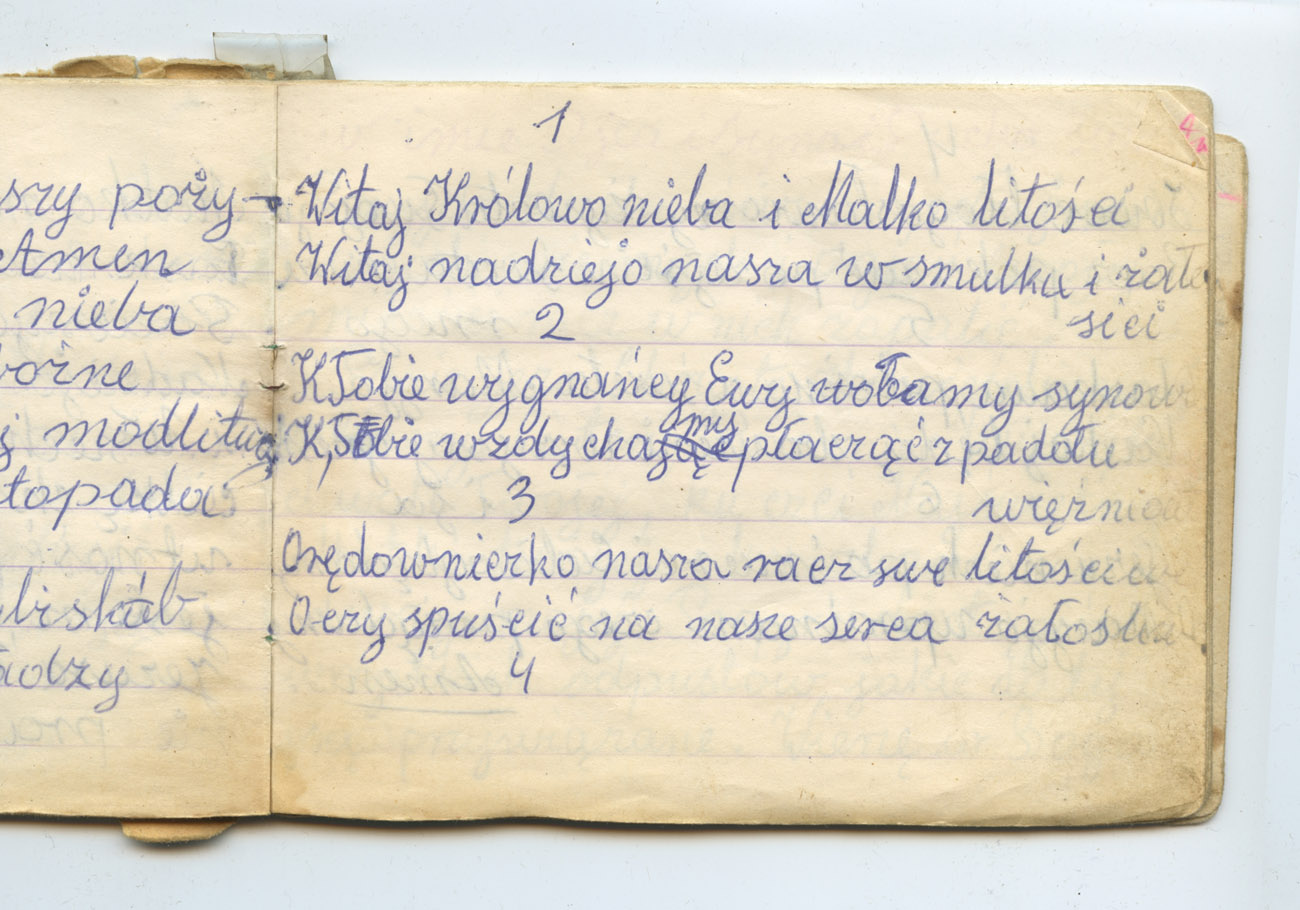 szy poży-
Amen
nieba
modlitwą
topada
biskób
adzy
1
Witaj Królowo nieba i Matko litości
Witaj nadziejo nasza w smutku i żało
ści
2
K Tobie wygnańcy Ewy wołamy synowie
K, Tobie wzdychamy płacząć z padołu
więźniowie
3
Orędowniczko nasza racz swe litościwe
Oczy spuścić na nasze serca żałośliwe
4
4